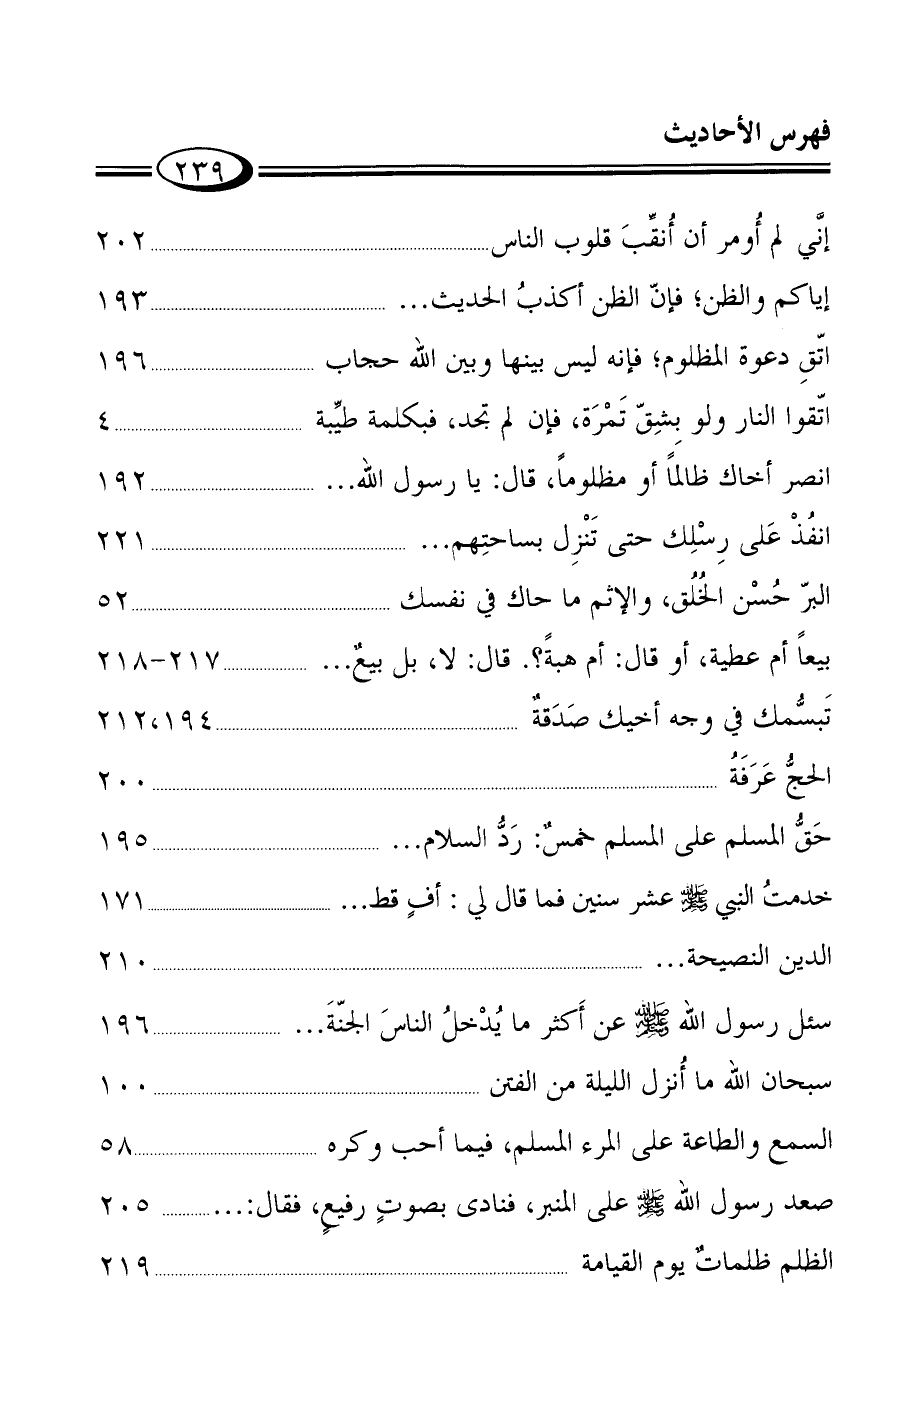 فهرس الأحاديث
٢٣٩
إنَّي لم أُومر أن أُنقِّبَ قلوب الناس ٢٠٢
إياكم والظن؛ فإنّ الظن أكذبُ الحديث... ١٩٣
اتّقِ دعوة المظلوم؛ فإنه ليس بينها وبين الله حجاب ١٩٦
اتّقوا النار ولو بِشِقّ تَمْرَة، فإن لم تجد، فبكلمة طيِّبة ٤
انصر أخاك ظالماً أو مظلوماً، قال: يا رسول الله... ١٩٢
انفُذْ عَلى رِسْلِك حتى تَنْزِل بساحتِهم... ٢٢١
البرّ حُسْن الخُلُق، والإثم ما حاك في نفسك ٥٢
بيعاً أم عطية، أو قال: أم هبةً؟. قال: لا، بل بيعٌ... ٢١٧-٢١٨
تَبسُّمك في وجه أخيك صَدَقةٌ ١٩٤،٢١٢
الحجُّ عَرَفَةُ ٢٠٠
حَقُّ المسلم على المسلم خمسٌ: رَدُّ السلام... ١٩٥
خدمتُ النبي ﷺ عشر سنين فما قال لي : أفٍ قط... ١٧١
الدين النصيحة... ٢١٠
سئل رسول الله ﷺ عن أَكثر ما يُدْخلُ الناسَ الجنّةَ... ١٩٦
سبحان الله ما أُنزل الليلة من الفتن ١٠٠
السمع والطاعة على المرء المسلم، فيما أحب وكره ٥٨
صعد رسول الله ﷺ على المنبر، فنادى بصوتٍ رفيعٍ، فقال:... ٢٠٥
الظلم ظلماتٌ يوم القيامة ٢١٩